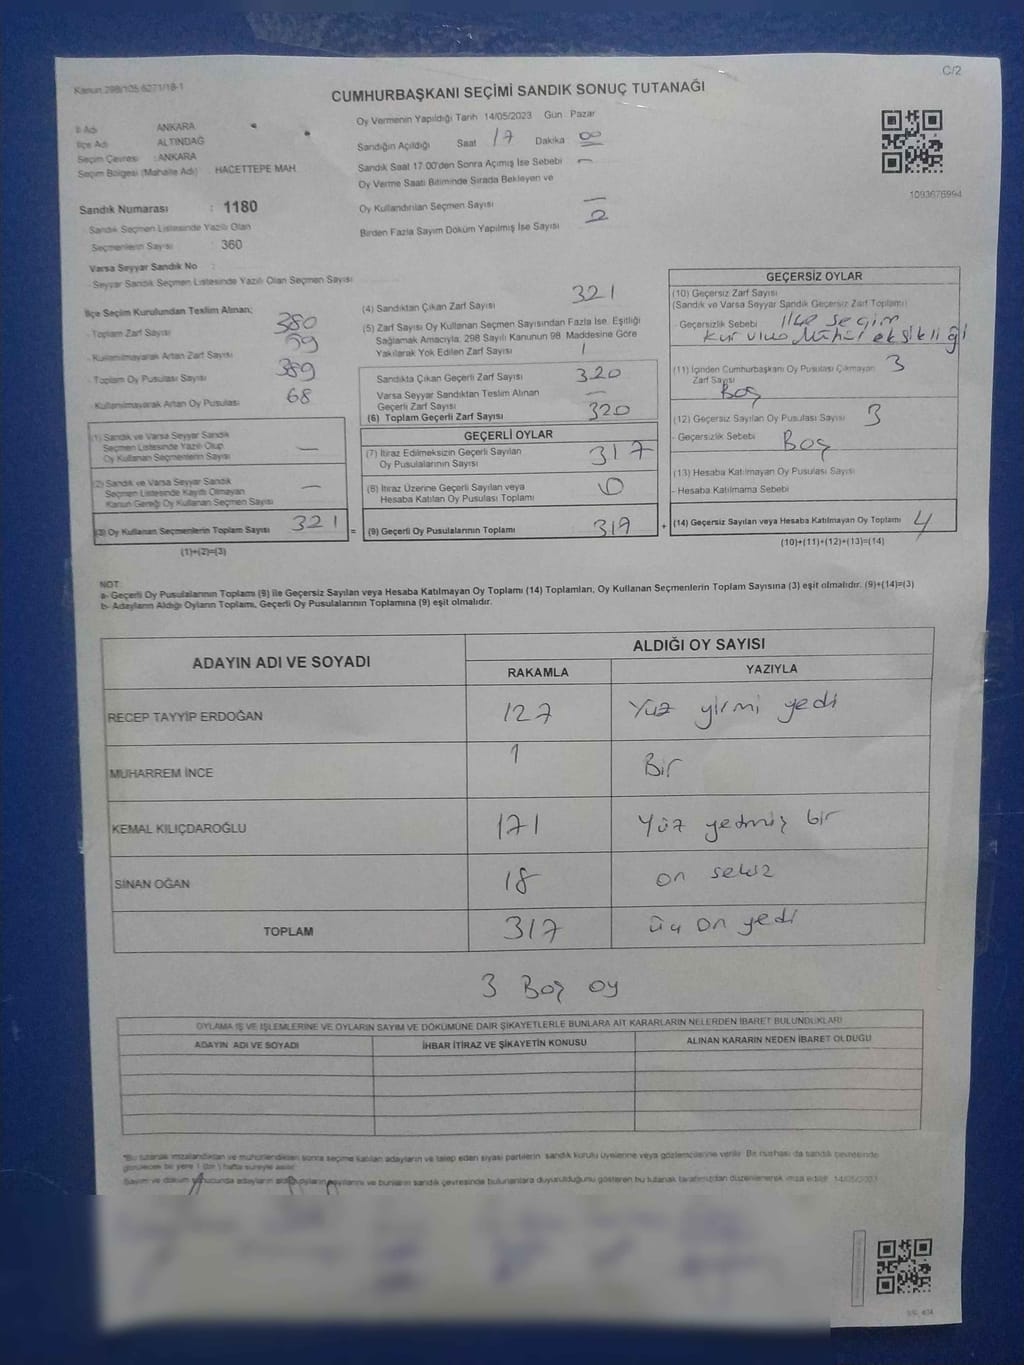 Kanun 298/105 6271/18-1
C/2
CUMHURBAŞKANI SEÇİMİ SANDIK SONUÇ TUTANAĞI
İl Adı ANKARA
İlçe Adı ALTINDAĞ
Seçim Çevresi : ANKARA
Seçim Bölgesi (Mahalle Adı) HACETTEPE MAH.
Sandık Numarası : 1180
Sandık Seçmen Listesinde Yazılı Olan
Seçmenlerin Sayısı : 360
Varsa Seyyar Sandık No :
- Seyyar Sandık Seçmen Listesinde Yazılı Olan Seçmen Sayısı
Oy Vermenin Yapıldığı Tarih 14/05/2023 Gün : Pazar
Sandığın Açıldığı Saat 17 Dakika 00
Sandık Saat 17.00'den Sonra Açmış İse Sebebi -
Oy Verme Saati Bitiminde Sırada Bekleyen ve
Oy Kullandırılan Seçmen Sayısı -
Birden Fazla Sayım Döküm Yapılmış İse Sayısı 2
1093676994
İlçe Seçim Kurulundan Teslim Alınan;
- Toplam Zarf Sayısı 380
- Kullanılmayarak Artan Zarf Sayısı 59
- Toplam Oy Pusulası Sayısı 389
- Kullanılmayarak Artan Oy Pusulası 68
(1) Sandık ve Varsa Seyyar Sandık
Seçmen Listesinde Yazılı Olup
Oy Kullanan Seçmenlerin Sayısı -
(2) Sandık ve Varsa Seyyar Sandık
Seçmen Listesinde Kayıtlı Olmayan
Kanun Gereği Oy Kullanan Seçmen Sayısı -
(3) Oy Kullanan Seçmenlerin Toplam Sayısı 321
(1)+(2)=(3)
(4) Sandıktan Çıkan Zarf Sayısı 321
(5) Zarf Sayısı Oy Kullanan Seçmen Sayısından Fazla İse, Eşitliği
Sağlamak Amacıyla, 298 Sayılı Kanunun 98. Maddesine Göre
Yakılarak Yok Edilen Zarf Sayısı 1
Sandıkta Çıkan Geçerli Zarf Sayısı 320
Varsa Seyyar Sandıktan Teslim Alınan
Geçerli Zarf Sayısı -
(6) Toplam Geçerli Zarf Sayısı 320
GEÇERLİ OYLAR
(7) İtiraz Edilmeksizin Geçerli Sayılan
Oy Pusulalarının Sayısı 317
(8) İtiraz Üzerine Geçerli Sayılan veya
Hesaba Katılan Oy Pusulası Toplamı 0
= (9) Geçerli Oy Pusulalarının Toplamı 317 +
GEÇERSİZ OYLAR
(10) Geçersiz Zarf Sayısı
(Sandık ve Varsa Seyyar Sandık Geçersiz Zarf Toplamı)
- Geçersizlik Sebebi ilçe seçim
kurulu Mühür eksikliği
(11) İçinden Cumhurbaşkanı Oy Pusulası Çıkmayan 3
Zarf Sayısı Boş
(12) Geçersiz Sayılan Oy Pusulası Sayısı 3
- Geçersizlik Sebebi Boş
(13) Hesaba Katılmayan Oy Pusulası Sayısı
- Hesaba Katılmama Sebebi
(14) Geçersiz Sayılan veya Hesaba Katılmayan Oy Toplamı 4
(10)+(11)+(12)+(13)=(14)
NOT:
a- Geçerli Oy Pusulalarının Toplamı (9) ile Geçersiz Sayılan veya Hesaba Katılmayan Oy Toplamı (14) Toplamları, Oy Kullanan Seçmenlerin Toplam Sayısına (3) eşit olmalıdır. (9)+(14)=(3)
b- Adayların Aldığı Oyların Toplamı, Geçerli Oy Pusulalarının Toplamına (9) eşit olmalıdır.
ADAYIN ADI VE SOYADI ALDIĞI OY SAYISI
RAKAMLA YAZIYLA
RECEP TAYYİP ERDOĞAN 127 Yüz yirmi yedi
MUHARREM İNCE 1 Bir
KEMAL KILIÇDAROĞLU 171 Yüz yetmiş bir
SİNAN OĞAN 18 on sekiz
TOPLAM 317 üç on yedi
3 Boş oy
OYLAMA İŞ VE İŞLEMLERİNE VE OYLARIN SAYIM VE DÖKÜMÜNE DAİR ŞİKAYETLERLE BUNLARA AİT KARARLARIN NELERDEN İBARET BULUNDUKLARI
ADAYIN ADI VE SOYADI İHBAR İTİRAZ VE ŞİKAYETİN KONUSU ALINAN KARARIN NEDEN İBARET OLDUĞU
*Bu tutanak imzalandıktan ve mühürlendikten sonra seçime katılan adayların ve talep eden siyasi partilerin sandık kurulu üyelerine veya gözlemcilerine verilir. Bir nüshası da sandık çevresinde
görülecek bir yere 1 (bir) hafta süreyle asılır.
Sayım ve döküm sonucunda adayların aldığı oyların sayılarını ve bunların sandık çevresinde bulunanlara duyurulduğunu gösteren bu tutanak tarafımızdan düzenlenerek imza edildi. 14/05/2023